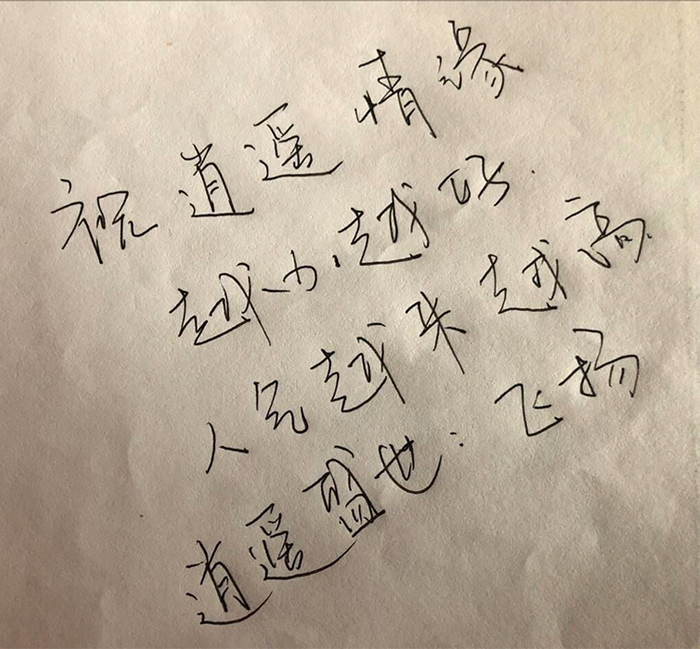 祝逍遥情缘
越办越好.
人气越来越高
逍遥盛世:飞扬